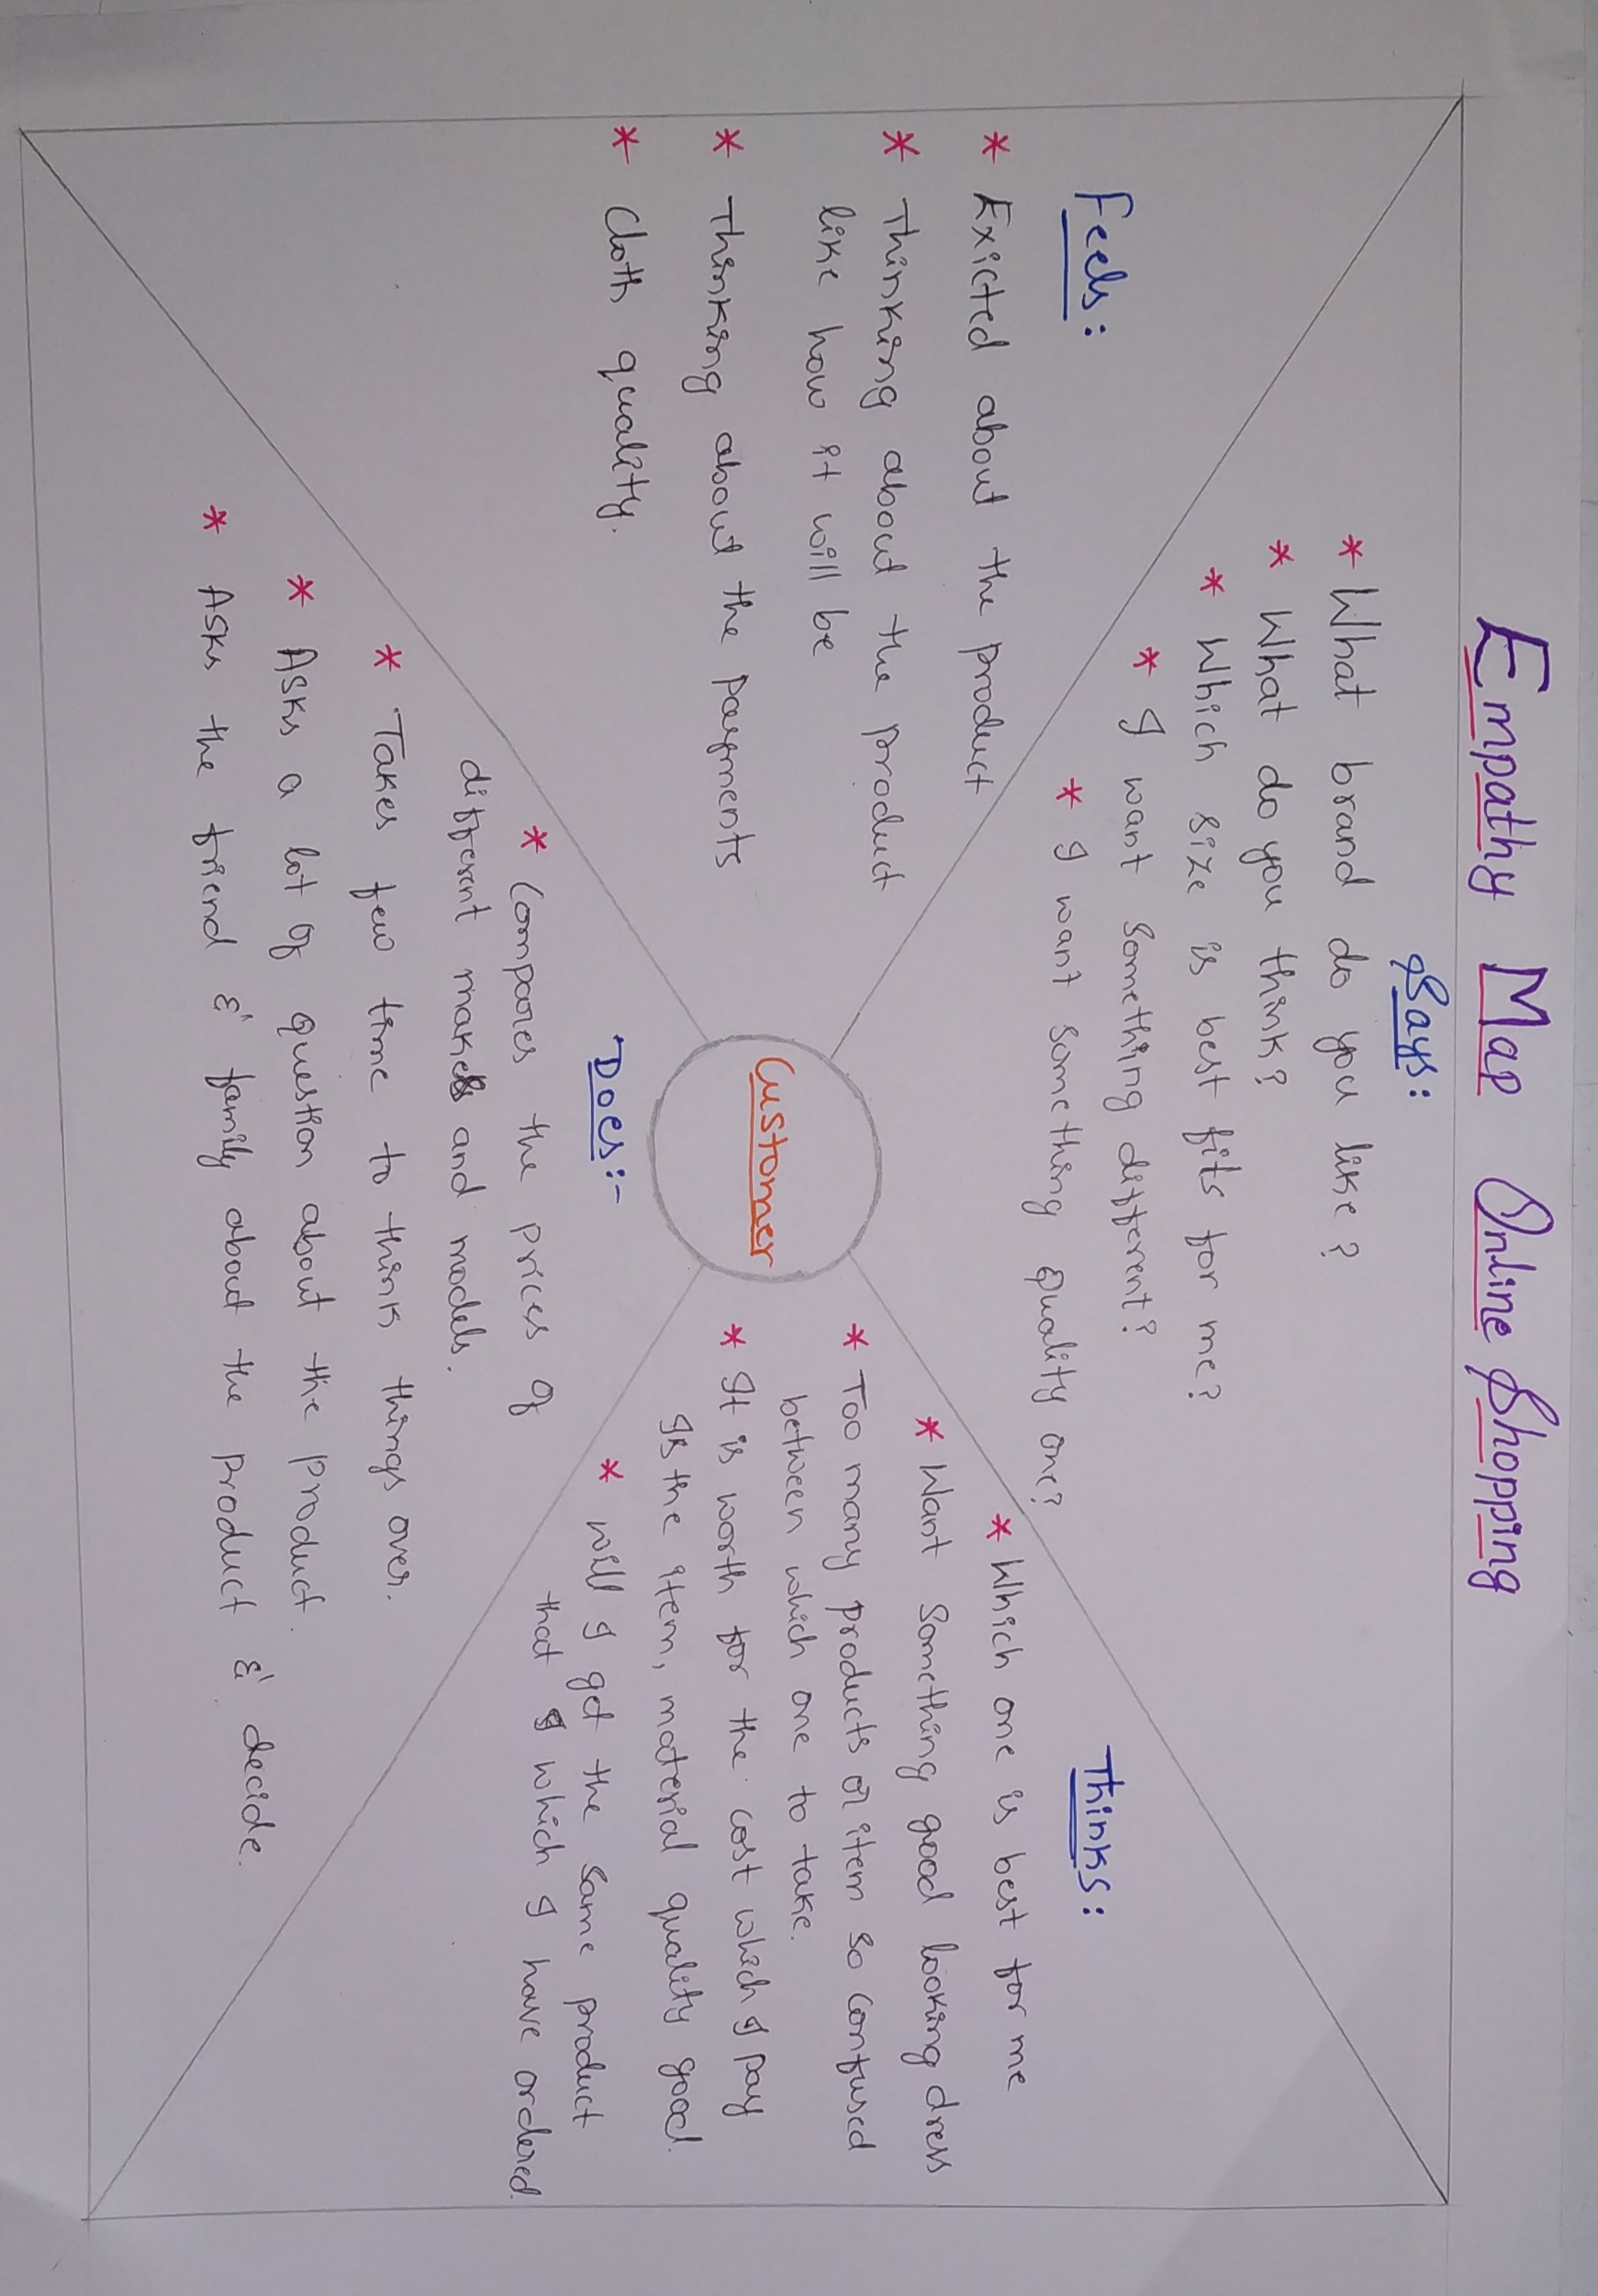 Empathy Map Online Shopping
Says:
* What brand do you like?
* What do you think?
* Which size is best fits for me?
* I want something different?
* I want something quality one?
Feels:
* Exicted about the product
* Thinking about the product
like how it will be
* Thinking about the payments
* Cloth quality.
Customer
Thinks:
* Which one is best for me
* Want something good looking dress
* Too many products or item so confused
between which one to take.
* It is worth for the cost which I pay
Is the item, material quality good.
* will I get the same product
that which I have ordered.
Does:-
* Compares the prices of
different makes and models.
* Takes few time to think things over.
* Asks a lot of question about the product.
* Asks the friend & family about the product & decide.